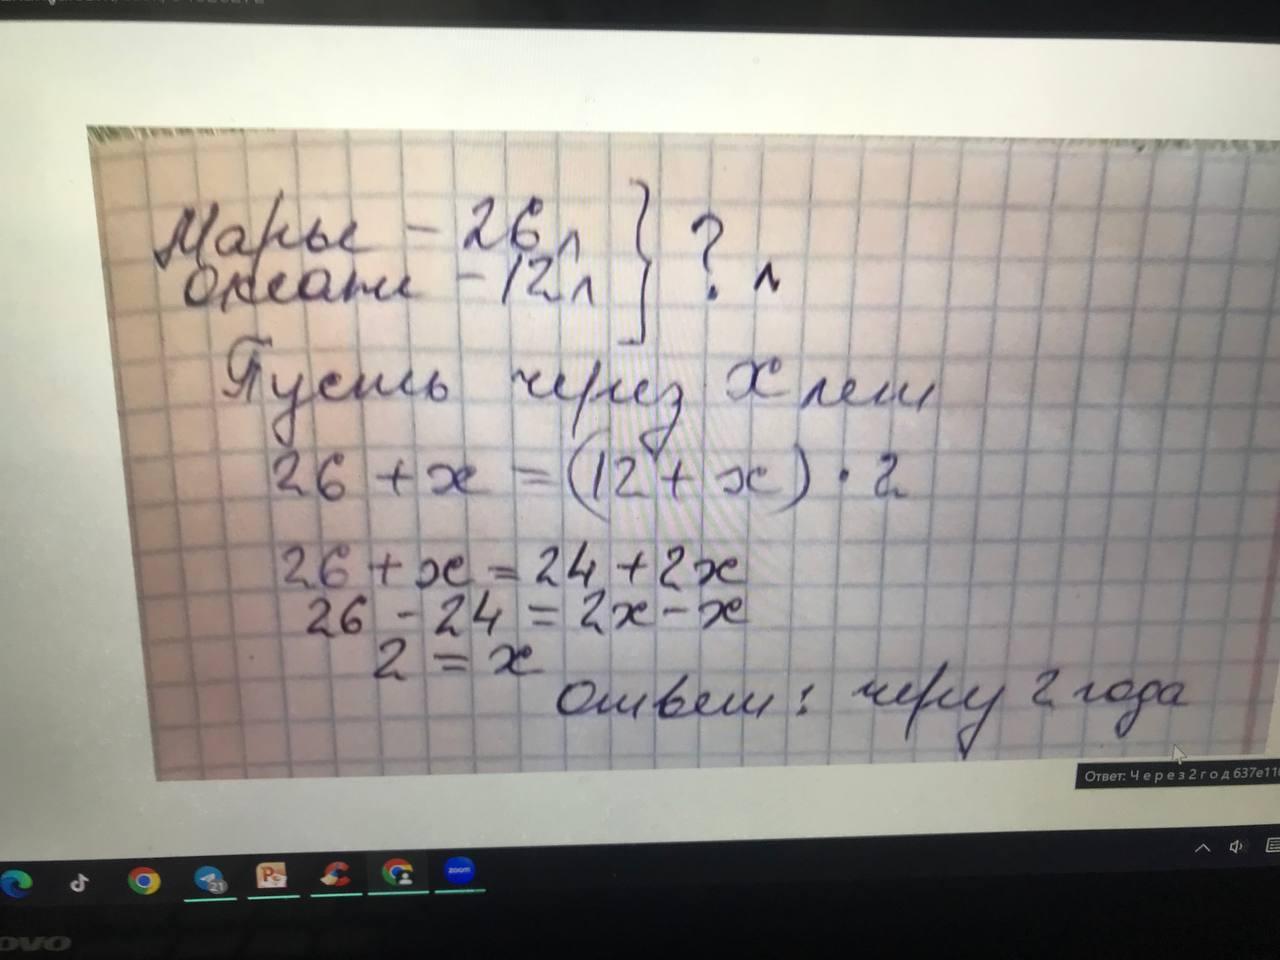 Марье – 26 л } ? л
Оксане – 12 л
Пусть через x лет
26 + x = (12 + x) · 2
26 + x = 24 + 2x
26 – 24 = 2x – x
2 = x
Ответ: через 2 года
Ответ: Ч е р е з 2 г о д 637e11
21
zoom
ovo